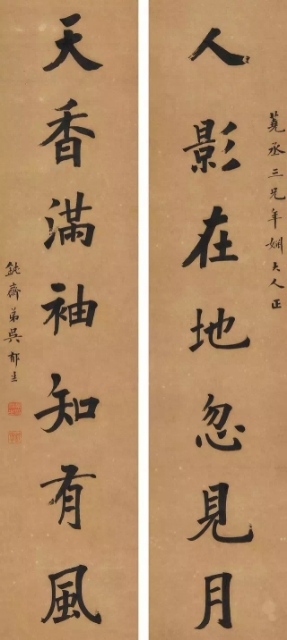 人影在地忽見月
堯丞三兄年姻大人正
天香滿袖知有風
鈍齋弟吳郁生